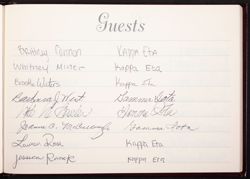 Guests
Brittney Cannon Kappa Eta
Whitney Miller Kappa Eta
Brooke Waters Kappa Eta
Barbara J. West Gamma Iota
Gamma Iota
Jeanne A. Gamma Iota
Lauren Rose Kappa Eta
Jessica Kappa Eta